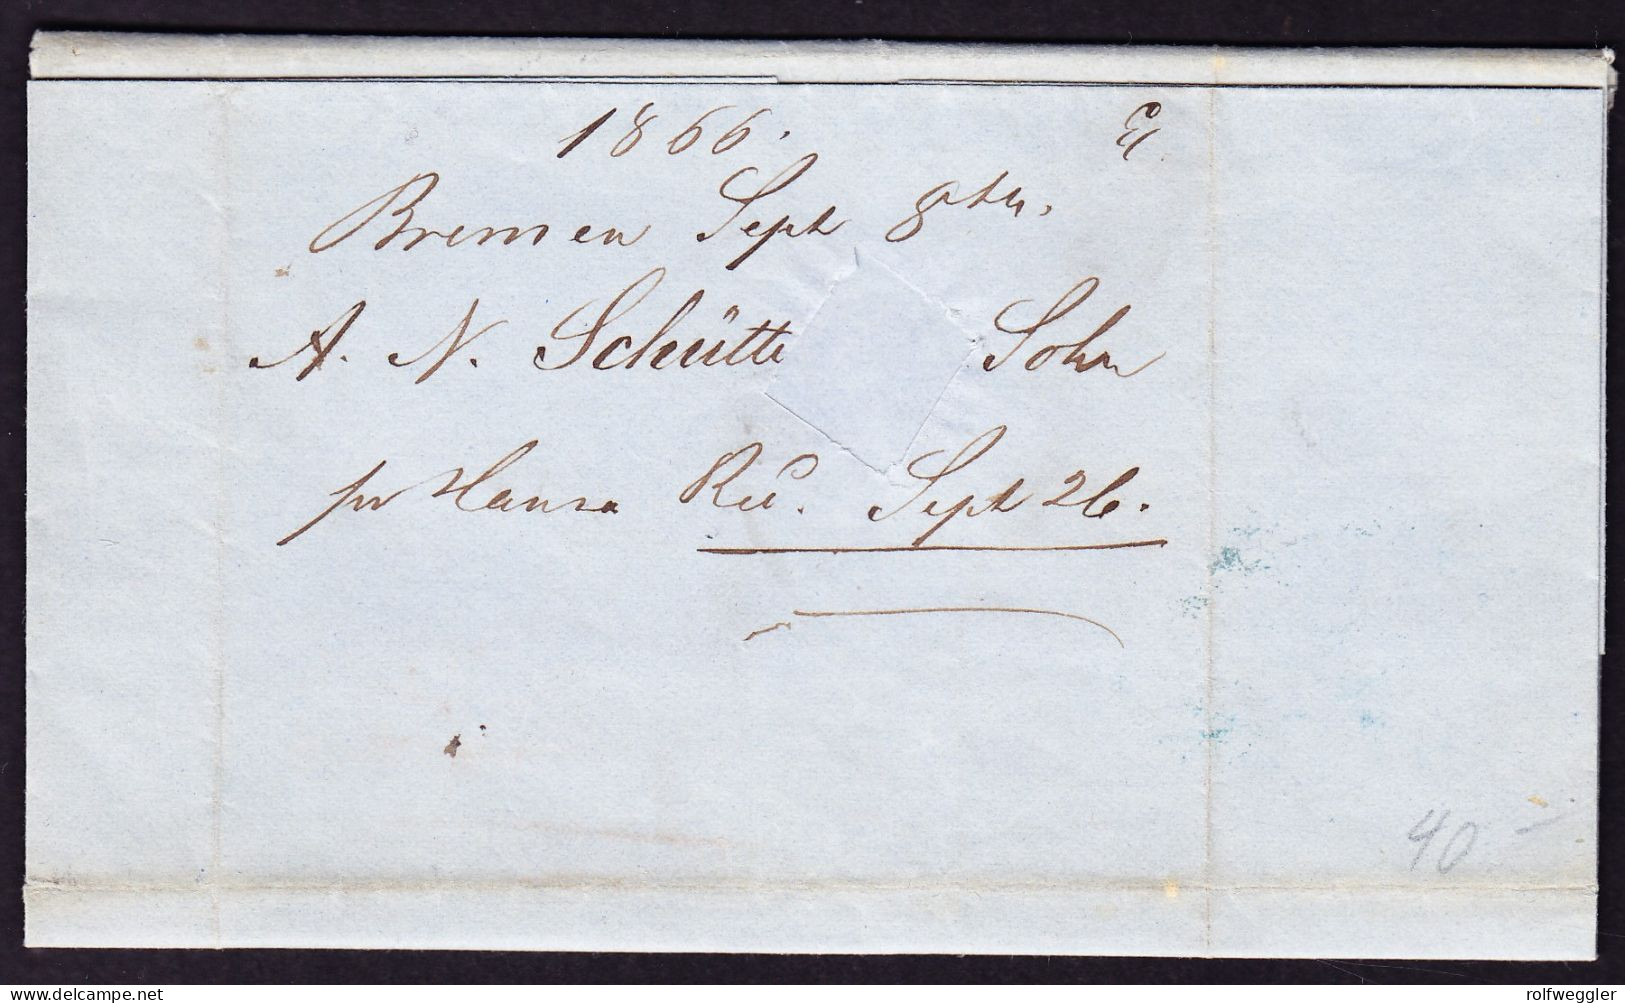 1866.
Bremen Sept 8th.
A. N. Schütte Sohn
pr Hansa Recd. Sept 26.
40 –
delcampe.net
rolfweggler